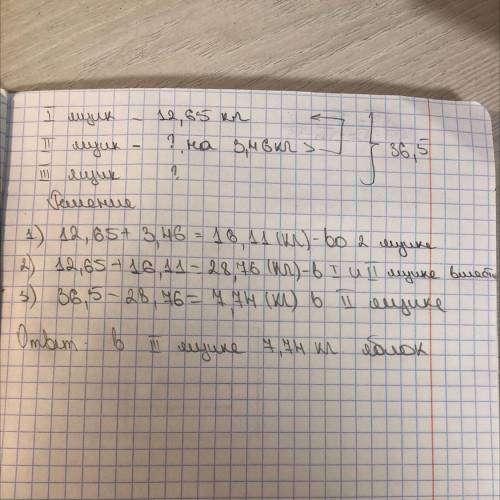 I ящик - 12,65 кг
II ящик - ? на 3,46 кг > 36,5
III ящик ?
Решение
1) 12,65 + 3,46 = 16,11 (кг) - во 2 ящике
2) 12,65 + 16,11 = 28,76 (кг) - в I и II ящике вместе
3) 36,5 - 28,76 = 7,74 (кг) в III ящике
Ответ: в III ящике 7,74 кг яблок